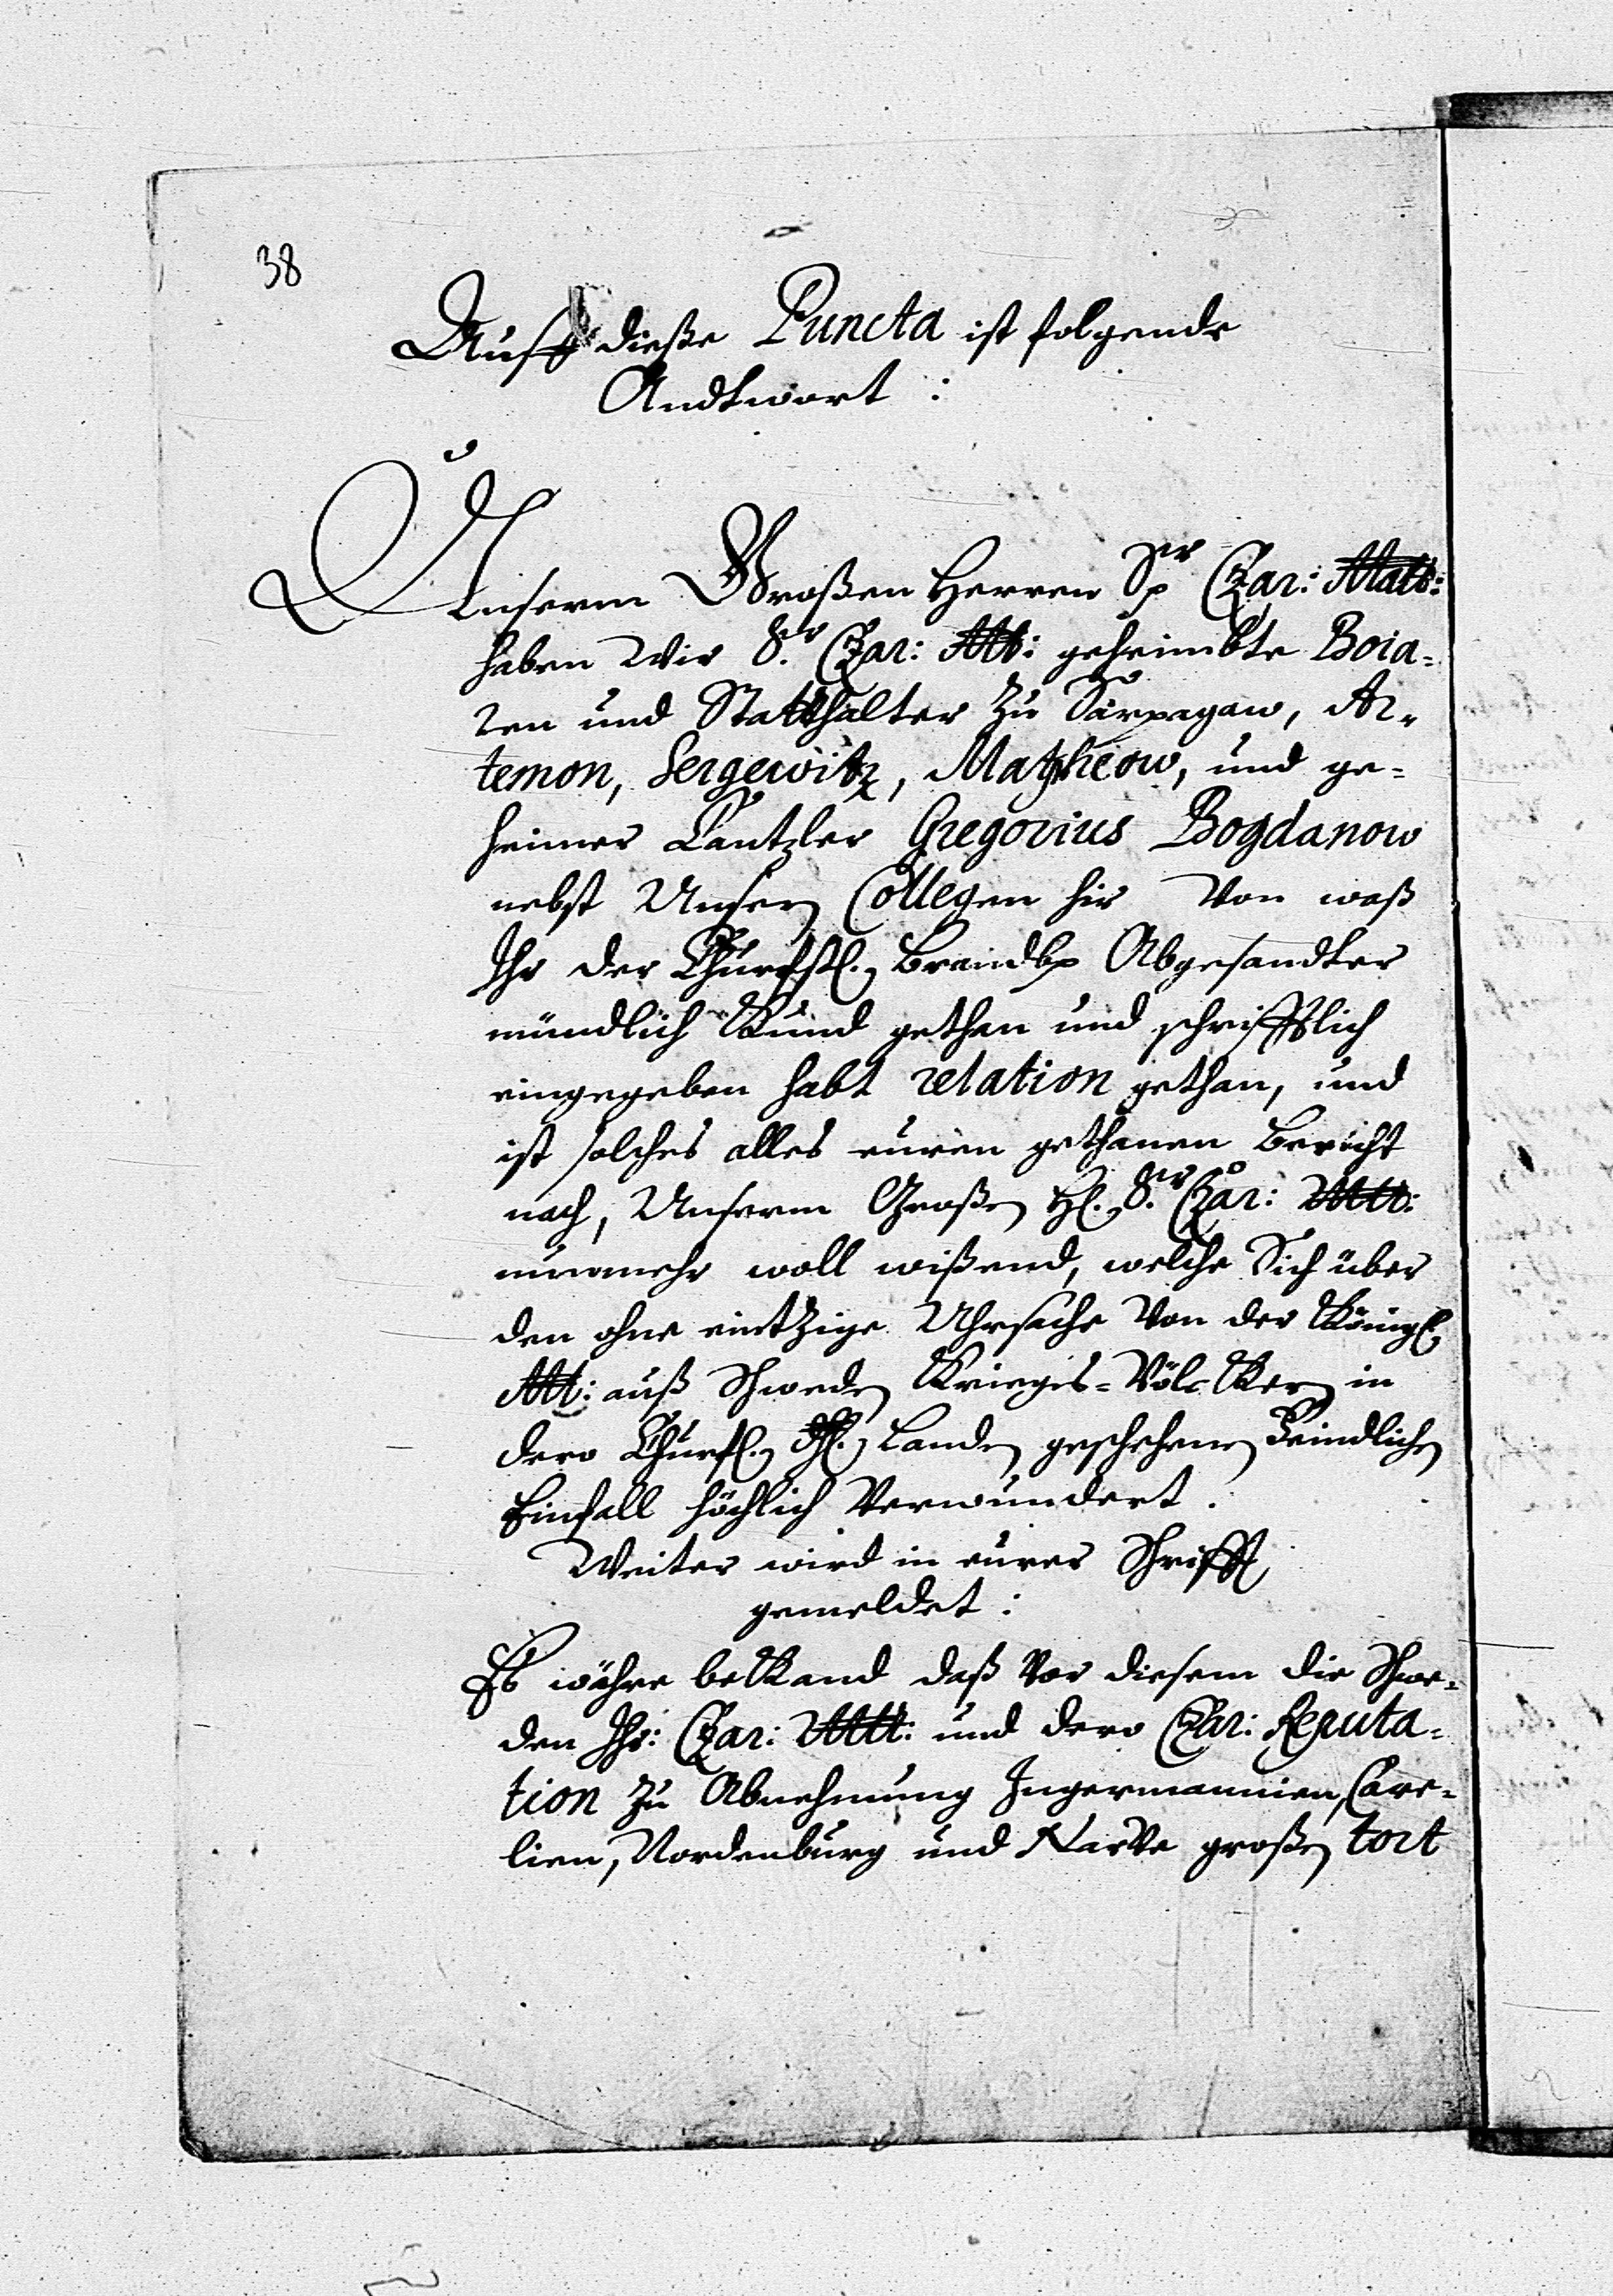 38
Auff dieße Puncta ist folgende
Andtwort :
Unserm Großen Herren Sr Czar: Matt:
haben Wir S.r Czar: Mt: geheimbte Boia-
ren und Statthalter zu Särpagow, Ar-
temon, Sergewitz, Matpheow, und ge-
heimer Cantzler Gregorius Bogdanow
nebst Unsern Collegen hir Von waß
Ihr der Churfstl. Brandb. Abgesandter
mündlich Kund gethan und schrifftlich
eingegeben habt relation gethan, und
ist solches alles euren gethanen Bericht
nach, Unserm Großen H. S.r Czar: Mtt:
nunmehr woll wißend, welche Sich über
den ohne eintzige Uhrsache Von der Königl.
Mt: auß Schweden Krieges-Völckern in
dero Churfl. Dhl. Landen geschehenen Feindlichen
Einfall höchlich Verwundert.
Weiter wird in eurer Schrifft
gemeldet :
Es währe beKand daß Vor diesem die Schwe-
den Ihr: Czar: Mtt: und dero Czar: Reputa-
tion zu Abnehmung Ingermannien, Care-
lien, Nordenburg und Narva großen tort